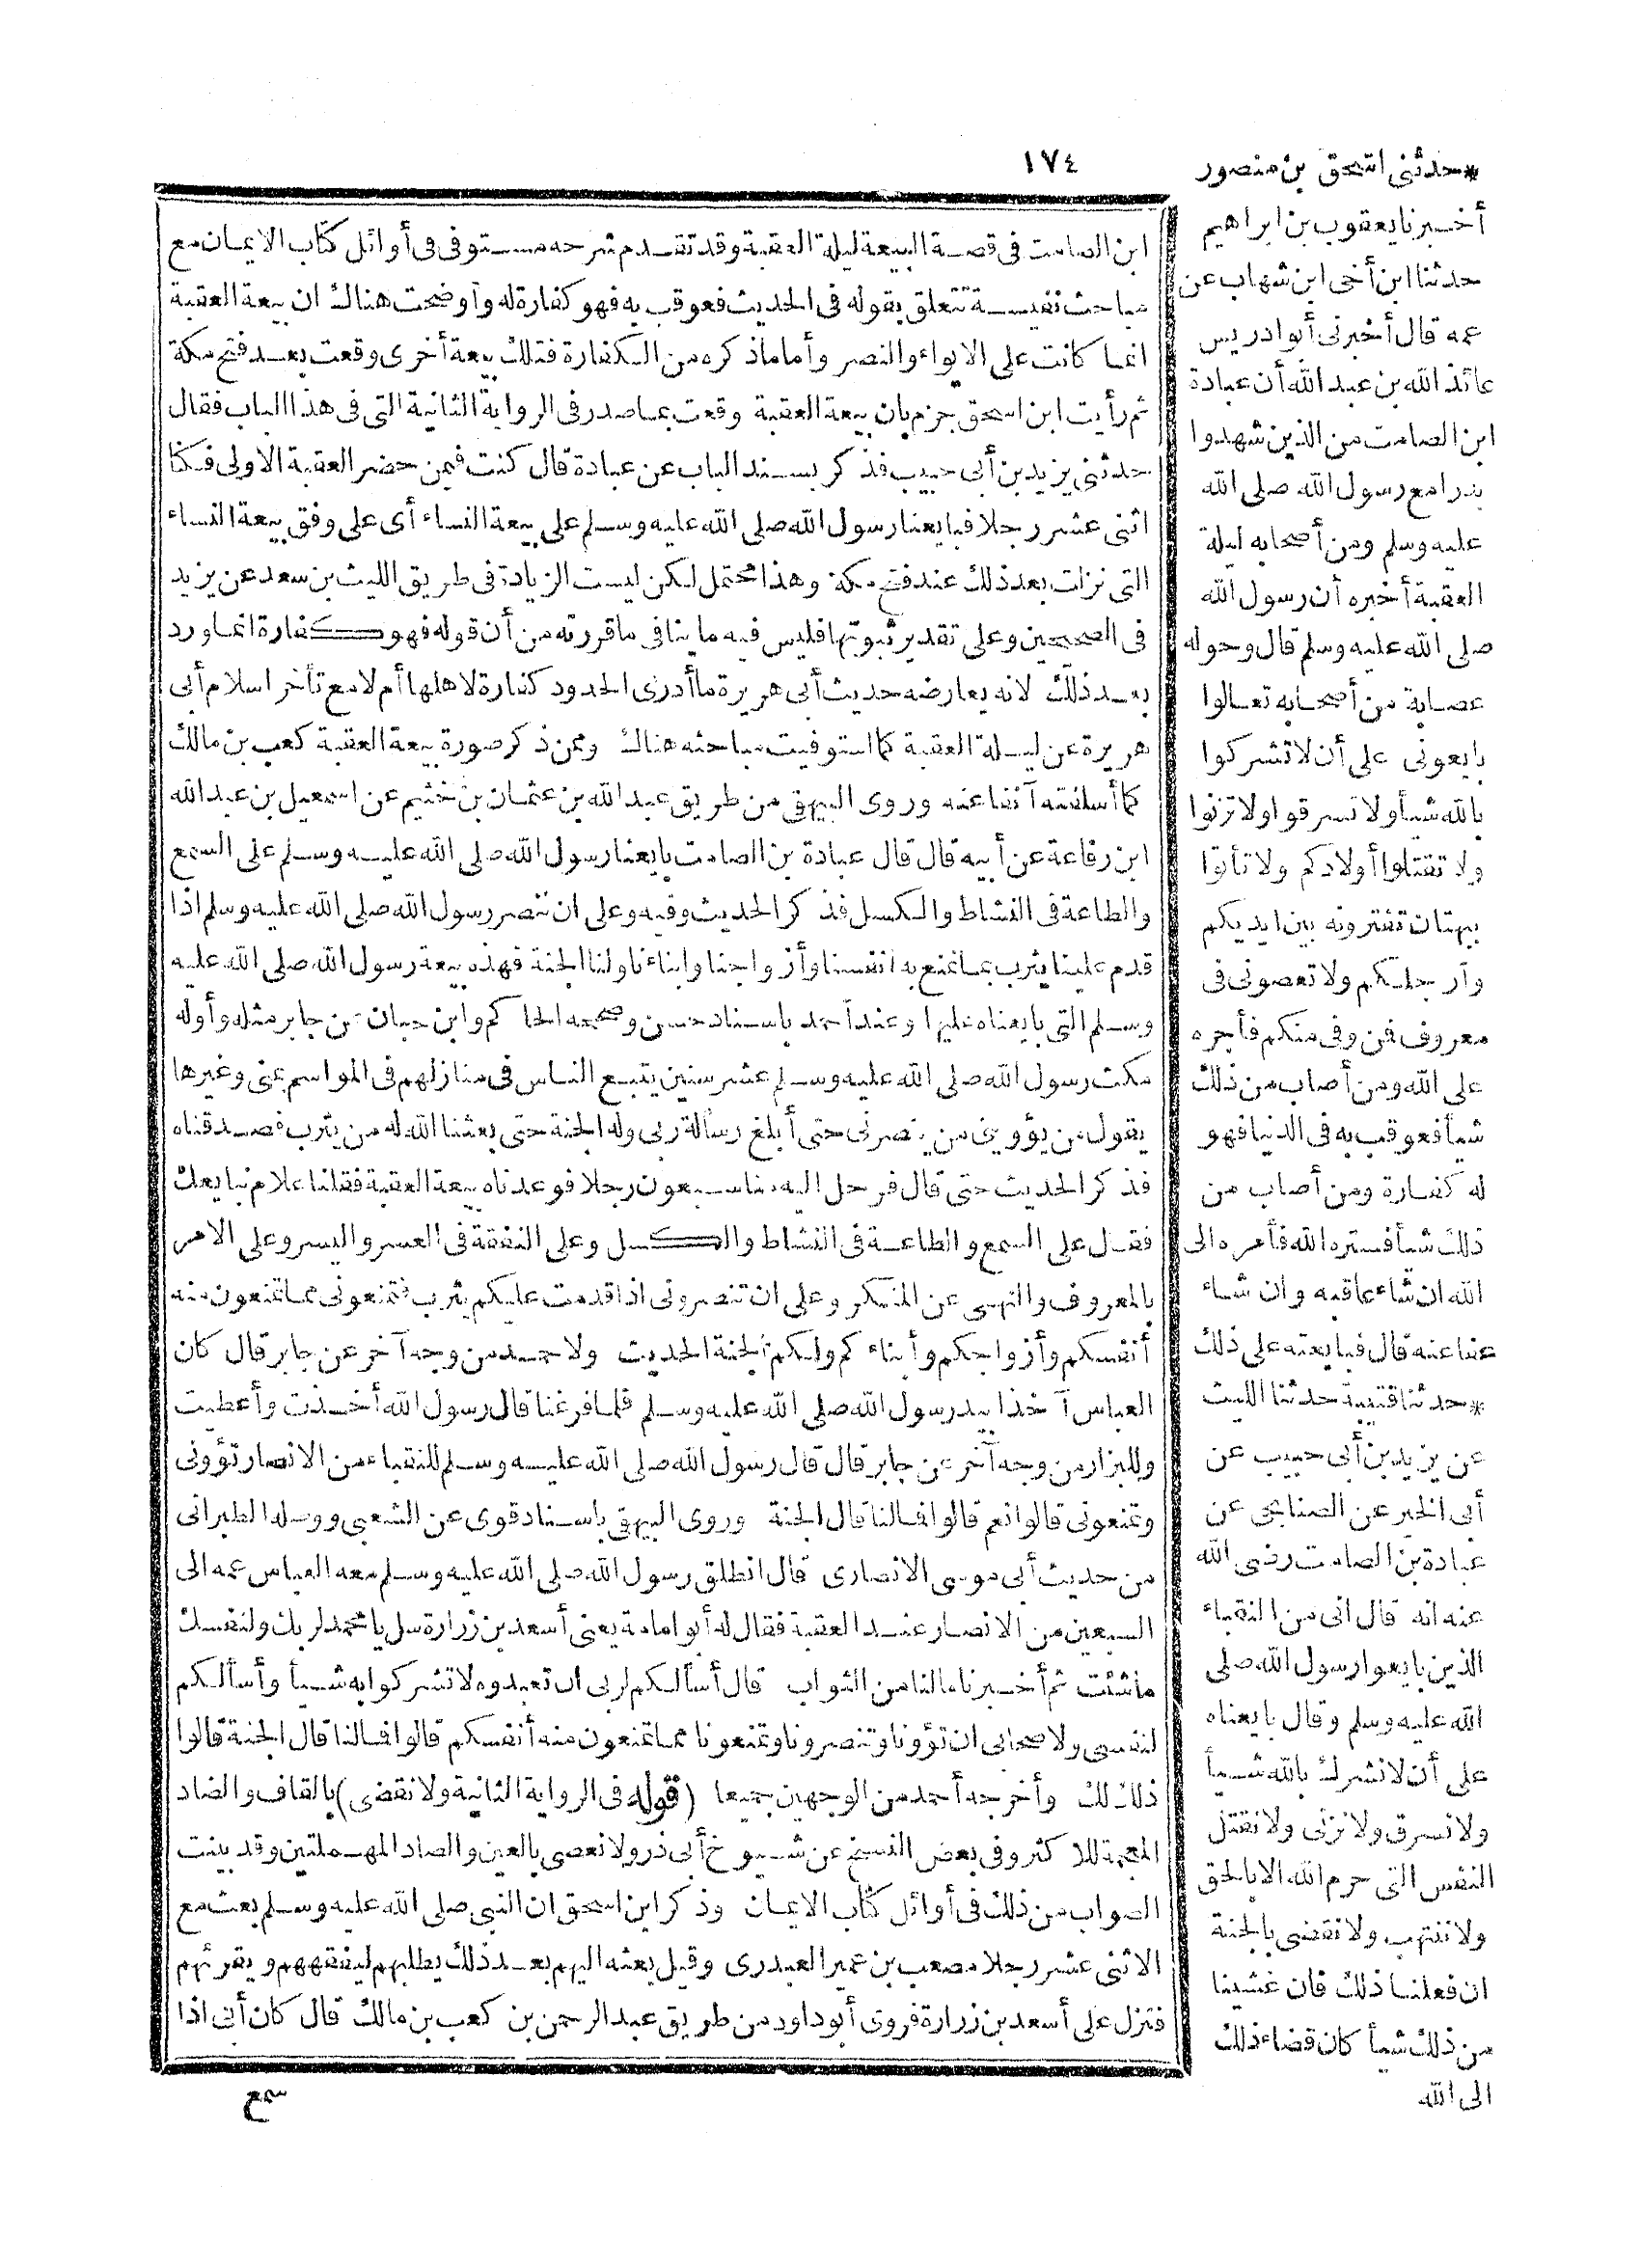 ١٧٤
* حدثنى اسحق بن منصور
أخبرنا يعقوب بن ابراهيم
حدثنا ابن أخى ابن شهاب عن
عمه قال أخبرنى أبوادريس
عائذ الله بن عبد الله أن عبادة
ابن الصامت من الذين شهدوا
بدرا مع رسول الله صلى الله
عليه وسلم ومن أصحابه ليلة
العقبة أخبره أن رسول الله
صلى الله عليه وسلم قال وحوله
عصابة من أصحابه تعالوا
بايعونى على أن لا تشركوا
بالله شيأ ولا تسرقوا ولا تزنوا
ولا تقتلوا أولادكم ولا تأتوا
ببهتان تفترونه بين ايديكم
وأرجلكم ولا تعصونى فى
معروف فمن وفى منكم فأجره
على الله ومن أصاب من ذلك
شيأ فعوقب به فى الدنيا فهو
له كفارة ومن أصاب من
ذلك شيأ فستره الله فأمره الى
الله ان شاء عاقبه وان شاء
عفا عنه قال فبايعته على ذلك
* حدثنا قتيبة حدثنا الليث
عن يزيد بن أبى حبيب عن
أبى الخير عن الصنابحى عن
عبادة بن الصامت رضى الله
عنه انه قال انى من النقباء
الذين بايعوا رسول الله صلى
الله عليه وسلم وقال بايعناه
على أن لا نشرك بالله شيأ
ولا نسرق ولا نزنى ولا نقتل
النفس التى حرم الله الا بالحق
ولا ننتهب ولا نقضى بالجنة
ان فعلنا ذلك فان غشينا
من ذلك شيأ كان قضاء ذلك
الى الله
ابن الصامت فى قصة البيعة ليلة العقبة وقد تقدم شرحه مستوفى فى أوائل كتاب الايمان مع
مباحث نفيسة تتعلق بقوله فى الحديث فعوقب به فهو كفارة له وأوضحت هناك ان بيعة العقبة
انما كانت على الايواء والنصر وأما ماذكره من الكفارة فتلك بيعة أخرى وقعت بعد فتح مكة
ثم رأيت ابن اسحق جزم بان بيعة العقبة وقعت بما صدر فى الرواية الثانية التى فى هذا الباب فقال
حدثنى يزيد بن أبى حبيب فذكر بسند الباب عن عبادة قال كنت فيمن حضر العقبة الاولى فكنا
اثنى عشر رجلا فبايعنا رسول الله صلى الله عليه وسلم على بيعة النساء أى على وفق بيعة النساء
التى نزلت بعد ذلك عند فتح مكة وهذا محتمل لكن ليست الزيادة فى طريق الليث بن سعد عن يزيد
فى الصحيحين وعلى تقدير ثبوتها فليس فيه ما ينافى ما قررته من أن قوله فهو كفارة انما ورد
بعد ذلك لانه يعارضه حديث أبى هريرة ما أدرى الحدود كفارة لاهلها أم لا مع تأخر اسلام أبى
هريرة عن ليلة العقبة كما استوفيت مباحثه هناك وممن ذكر صورة بيعة العقبة كعب بن مالك
كما أسلفته آنفا عنه وروى البيهقى من طريق عبد الله بن عثمان بن خثيم عن اسمعيل بن عبد الله
ابن رفاعة عن أبيه قال قال عبادة بن الصامت بايعنا رسول الله صلى الله عليه وسلم على السمع
والطاعة فى النشاط والكسل فذكر الحديث وفيه وعلى ان ننصر رسول الله صلى الله عليه وسلم اذا
قدم علينا يثرب بما نمنع به انفسنا وأزواجنا وابناءنا ولنا الجنة فهذه بيعة رسول الله صلى الله عليه
وسلم التى بايعناه عليها وعند أحمد باسناد حسن وصححه الحاكم وابن حبان عن جابر مثله وأوله
مكث رسول الله صلى الله عليه وسلم عشر سنين يتبع الناس فى منازلهم فى المواسم بمنى وغيرها
يقول من يؤوينى من ينصرنى حتى أبلغ رسالة ربى وله الجنة حتى بعثنا الله له من يثرب فصدقناه
فذكر الحديث حتى قال فرحل اليه منا سبعون رجلا فوعدناه بيعة العقبة فقلنا علام نبايعك
فقال على السمع والطاعة فى النشاط والكسل وعلى النفقة فى العسر واليسر وعلى الامر
بالمعروف والنهى عن المنكر وعلى ان تنصرونى اذا قدمت عليكم يثرب فتمنعونى مما تمنعون منه
أنفسكم وأزواجكم وأبناءكم ولكم الجنة الحديث ولاحمد من وجه آخر عن جابر قال كان
العباس آخذا بيد رسول الله صلى الله عليه وسلم فلما فرغنا قال رسول الله أخذت وأعطيت
وللبزار من وجه آخر عن جابر قال قال رسول الله صلى الله عليه وسلم للنقباء من الانصار تؤونى
وتمنعونى قالوا نعم قالوا فمالنا قال الجنة وروى البيهقى باسناد قوى عن الشعبى ووصله الطبرانى
من حديث أبى موسى الانصارى قال انطلق رسول الله صلى الله عليه وسلم معه العباس عمه الى
السبعين من الانصار عند العقبة فقال له أبو امامة يعنى أسعد بن زرارة سل يا محمد لربك ولنفسك
ما شئت ثم أخبرنا مالنا من الثواب قال أسألكم لربى ان تعبدوه لا تشركوا به شيأ وأسألكم
لنفسى ولاصحابى ان تؤونا وتنصرونا وتمنعونا مما تمنعون منه أنفسكم قالوا فمالنا قال الجنة قالوا
ذلك لك وأخرجه أحمد من الوجهين جميعا (قوله فى الرواية الثانية ولا نقضى) بالقاف والضاد
المعجمة للاكثر وفى بعض النسخ عن شيوخ أبى ذر ولا نعصى بالعين والصاد المهملتين وقد بينت
الصواب من ذلك فى أوائل كتاب الايمان وذكر ابن اسحق ان النبى صلى الله عليه وسلم بعث مع
الاثنى عشر رجلا مصعب بن عمير العبدرى وقيل بعثه اليهم بعد ذلك يطلبهم ليفقههم ويقرئهم
فنزل على أسعد بن زرارة فروى أبو داود من طريق عبد الرحمن بن كعب بن مالك قال كان أبى اذا
سمع